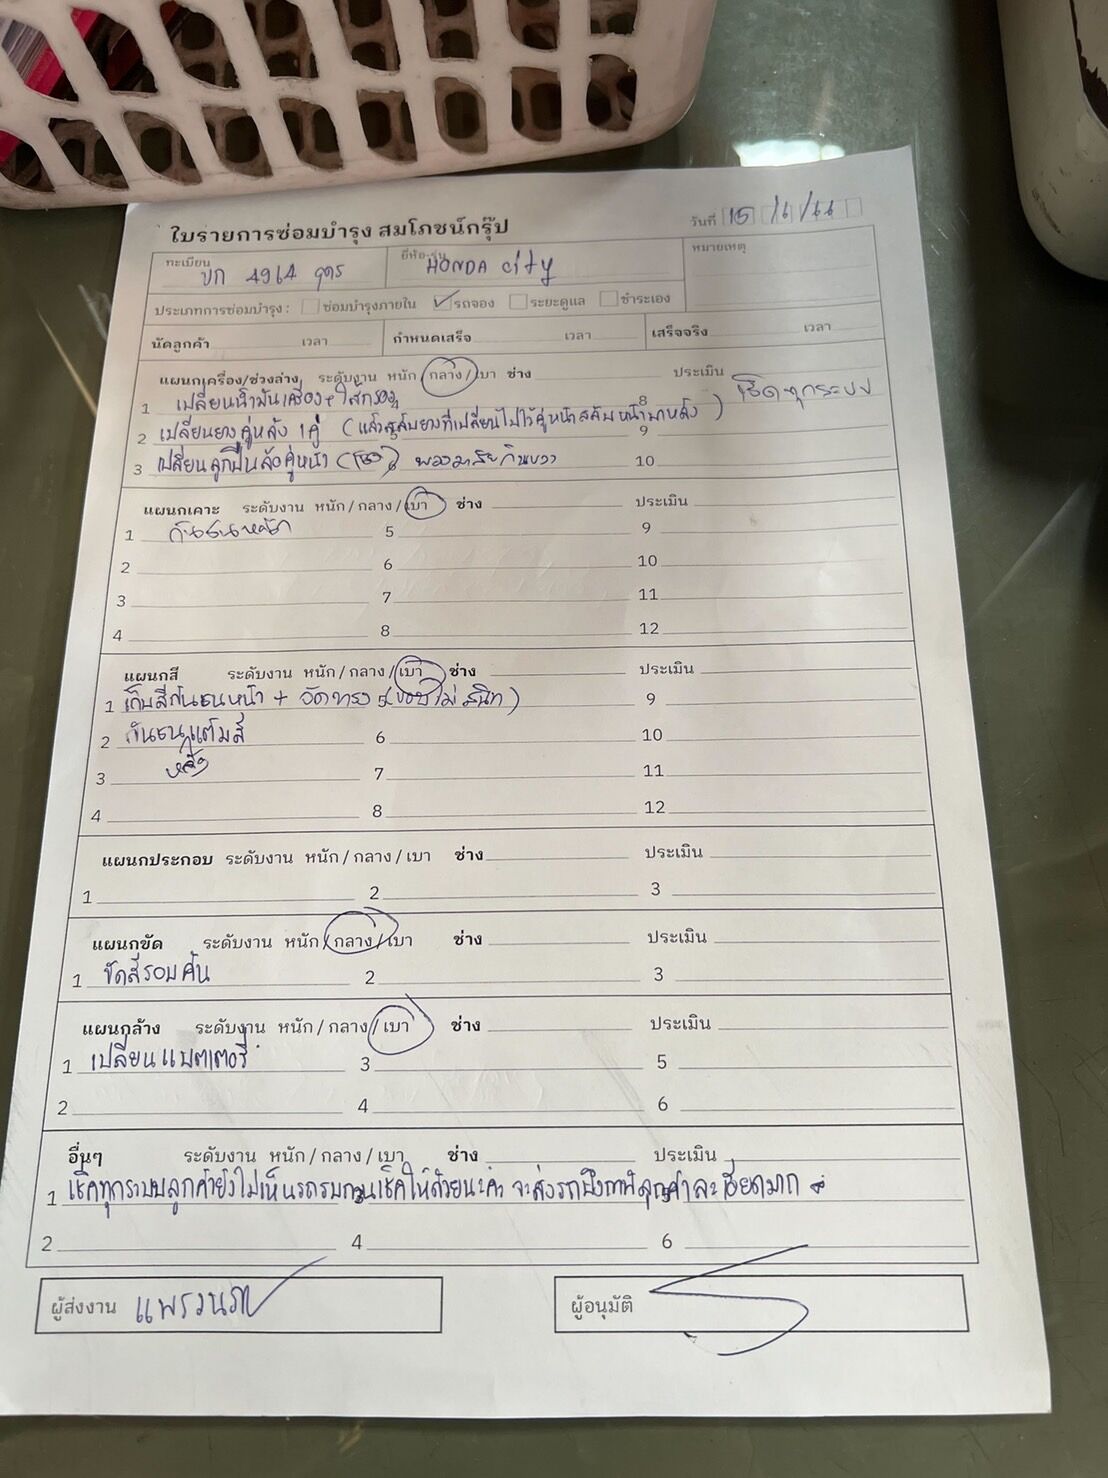 ใบรายการซ่อมบำรุง สมโภชน์กรุ๊ป
วันที่ 15
ทะเบียน ขก 4964 อุดร ยี่ห้อ-รุ่น HONDA city หมายเหตุ
ประเภทการซ่อมบำรุง : ซ่อมบำรุงภายใน รถจอง ระยะดูแล ชำระเอง
นัดลูกค้า เวลา กำหนดเสร็จ เวลา เสร็จจริง เวลา
แผนกเครื่อง/ช่วงล่าง ระดับงาน หนัก / กลาง / เบา ช่าง ประเมิน
1 เปลี่ยนน้ำมันเครื่อง + ไส้กรอง 8 เช็คทุกระบบ
2 เปลี่ยนยางคู่หลัง 1 คู่ (แล้วสลับยางที่เปลี่ยนไปไว้คู่หน้าสลับหน้ามาหลัง) 9
3 เปลี่ยนลูกปืนล้อคู่หน้า พวงมาลัยกินขวา 10
แผนกเคาะ ระดับงาน หนัก / กลาง / เบา ช่าง ประเมิน
1 กันชนหน้า 5 9
2 6 10
3 7 11
4 8 12
แผนกสี ระดับงาน หนัก / กลาง / เบา ช่าง ประเมิน
1 เก็บสีกันชนหน้า + จัดทรง 5 (ขอบไม่สนิท) 9
2 กันชนแต้มสี 6 10
หลัง
3 7 11
4 8 12
แผนกประกอบ ระดับงาน หนัก / กลาง / เบา ช่าง ประเมิน
1 2 3
แผนกขัด ระดับงาน หนัก / กลาง / เบา ช่าง ประเมิน
1 ขัดสีรอบคัน 2 3
แผนกล้าง ระดับงาน หนัก / กลาง / เบา ช่าง ประเมิน
1 เปลี่ยนแบตเตอรี่ 3 5
2 4 6
อื่นๆ ระดับงาน หนัก / กลาง / เบา ช่าง ประเมิน
1 เช็คทุกระบบลูกค้ายังไม่เห็นรถรบกวนเช็คให้ด้วยนะคะ จะส่งรถถึงที่ ลูกค้าละเอียดมาก
2 4 6
ผู้ส่งงาน แพรวนภา ผู้อนุมัติ